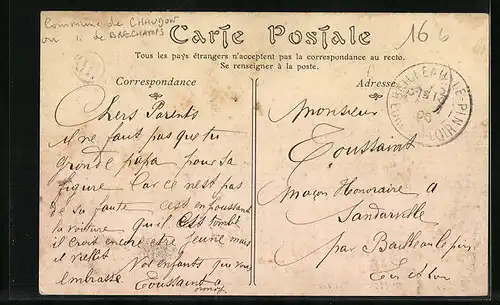 Commune de CHAUDON
ou " de BRECHAMPS
16 6
Carte Postale
Tous les pays étrangers n'acceptent pas la correspondance au recto.
Se renseigner à la poste.
Correspondance
Adresse
BAILLEAU-LE-PIN
Chers Parents
il ne faut pas que tu
gronde papa pour sa
figure Car ce nest pas
de sa faute cest en poussant
la voiture quil est tombé
il croit encore être jeune mais
il
Vos enfants qui vous
embrasse
Toussaint
Monsieur
Toussaint
maçon Honoraire a
Sandarville
par Bailleau le pin
Eure et Loir